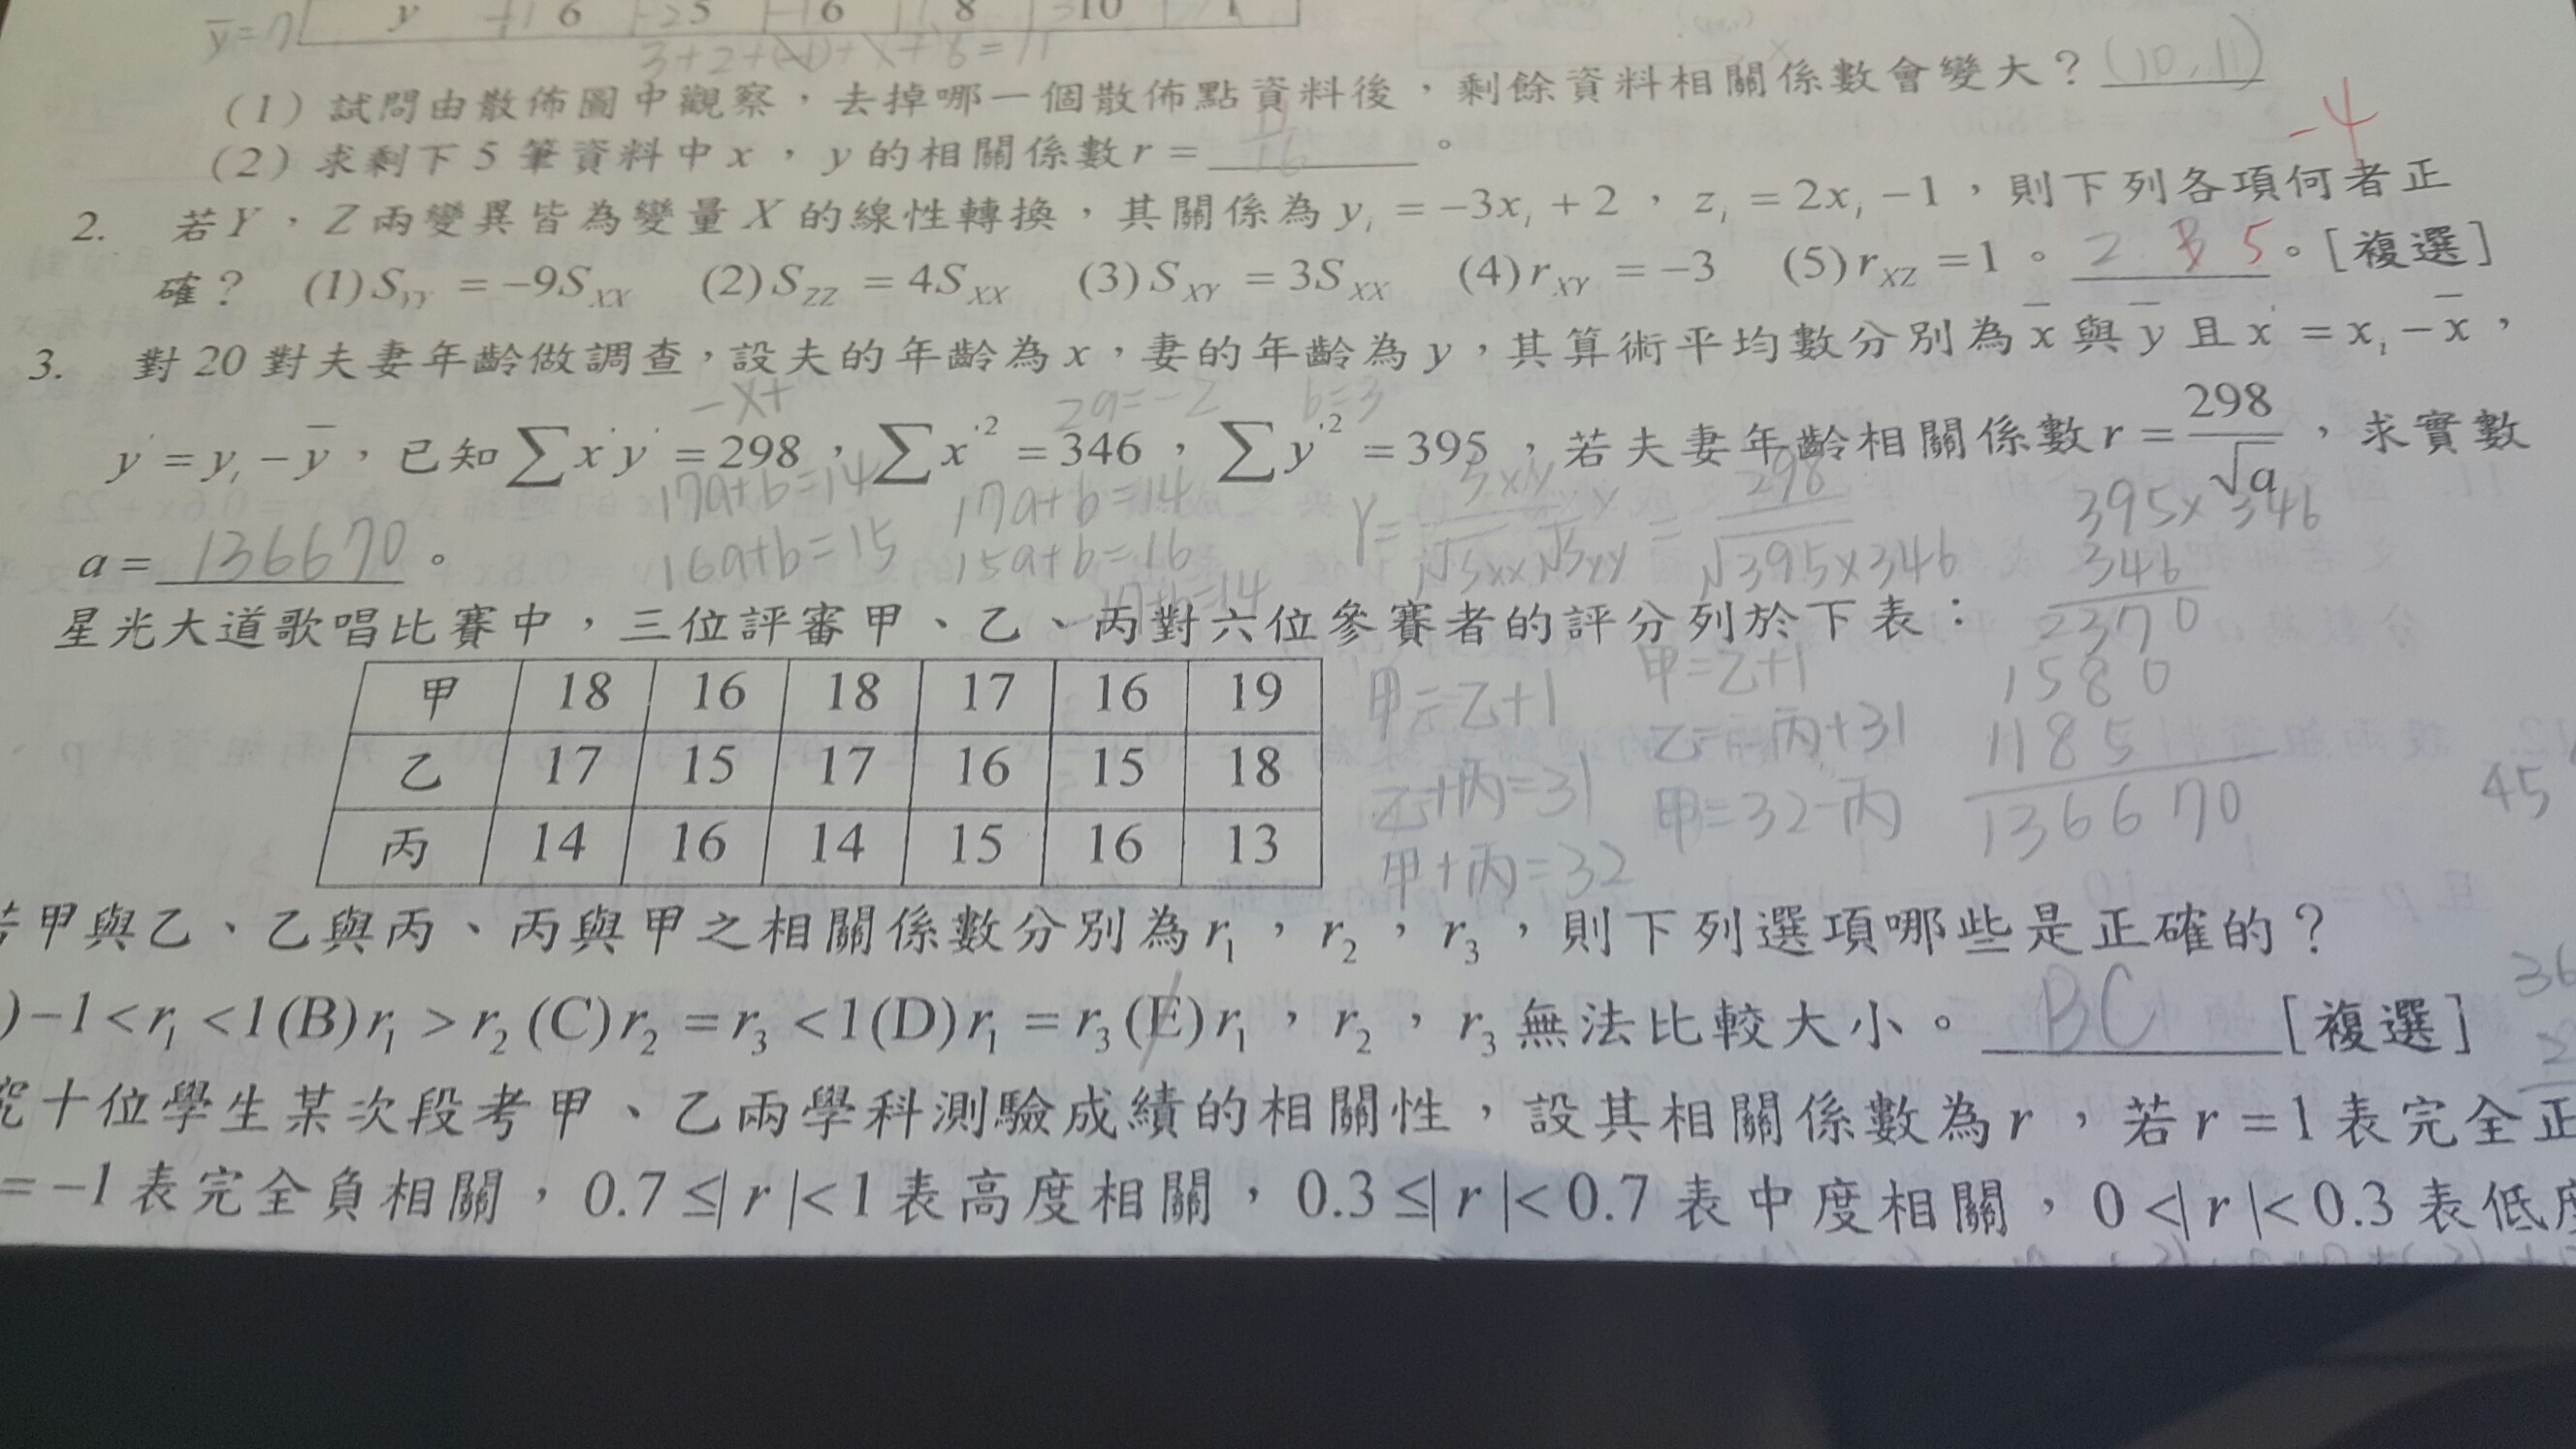 y 6 5 6 8 10
ȳ=7
3+2+(-1)+1+6=11
(1) 試問由散佈圖中觀察，去掉哪一個散佈點資料後，剩餘資料相關係數會變大？(10,11)
(2) 求剩下 5 筆資料中 x，y 的相關係數 r = 16。
-4
2. 若 Y，Z 兩變異皆為變量 X 的線性轉換，其關係為 yᵢ = -3xᵢ + 2，zᵢ = 2xᵢ - 1，則下列各項何者正
確？ (1) S_YY = -9S_XX (2) S_ZZ = 4S_XX (3) S_XY = 3S_XX (4) r_XY = -3 (5) r_XZ = 1。 2 5。[複選]
3. 對 20 對夫妻年齡做調查，設夫的年齡為 x，妻的年齡為 y，其算術平均數分別為 x̄ 與 ȳ 且 x' = xᵢ - x̄，
-x+ 2a=-2 b=3
y' = yᵢ - ȳ，已知 ∑x'y' = 298，∑x'² = 346，∑y'² = 395，若夫妻年齡相關係數 r = 298/√a，求實數
17a+b=14 17a+b=14 r = Sxy/√Sxx√Syy = 298/√395×346 395×346
a = 136670。
16a+b=15 15a+b=16 346
17+b=14 2370
星光大道歌唱比賽中，三位評審甲、乙、丙對六位參賽者的評分列於下表：
甲 18 16 18 17 16 19
乙 17 15 17 16 15 18
丙 14 16 14 15 16 13
甲=乙+1 甲=乙+1 1580
乙=-丙+31 1185
乙+丙=31 甲=32-丙 136670
甲+丙=32
45
甲與乙、乙與丙、丙與甲之相關係數分別為 r₁，r₂，r₃，則下列選項哪些是正確的？
)-1 < r₁ < 1 (B) r₁ > r₂ (C) r₂ = r₃ < 1 (D) r₁ = r₃ (E) r₁，r₂，r₃ 無法比較大小。 BC [複選]
36
2
究十位學生某次段考甲、乙兩學科測驗成績的相關性，設其相關係數為 r，若 r = 1 表完全正
= -1 表完全負相關，0.7 ≤ |r| < 1 表高度相關，0.3 ≤ |r| < 0.7 表中度相關，0 < |r| < 0.3 表低度